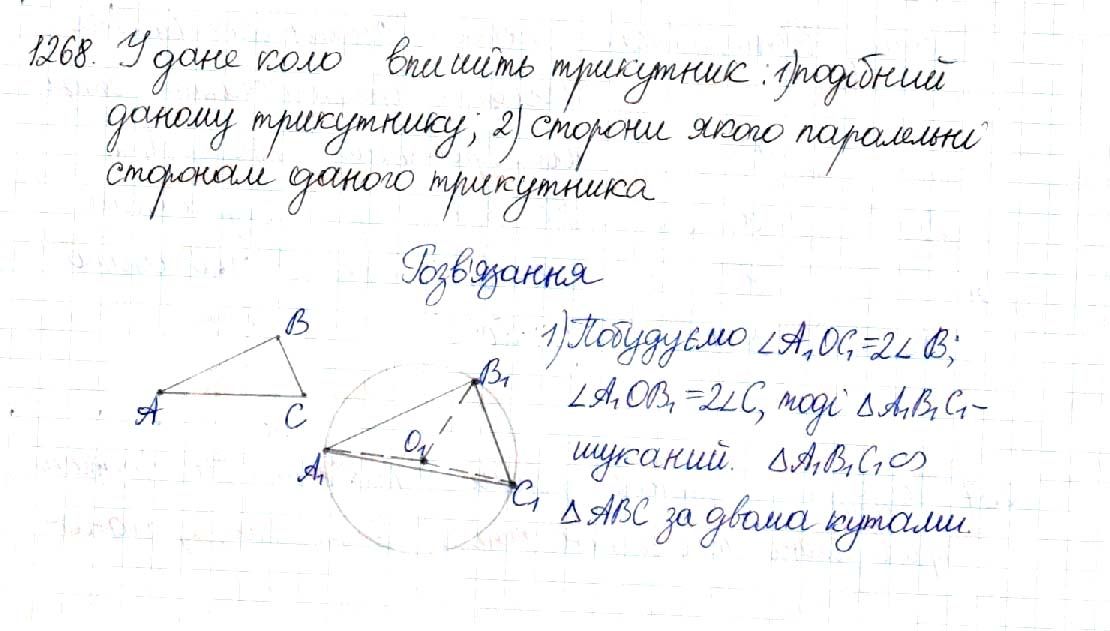 1268. У дане коло впишіть трикутник: 1) подібний
даному трикутнику; 2) сторони якого паралельні
сторонам даного трикутника
Розв'язання
B
A
C
B₁
O₁
A₁
C₁
1) Побудуємо ∠A₁OC₁=2∠B;
∠A₁OB₁=2∠C, тоді △A₁B₁C₁–
шуканий. △A₁B₁C₁∽
△ABC за двома кутами.